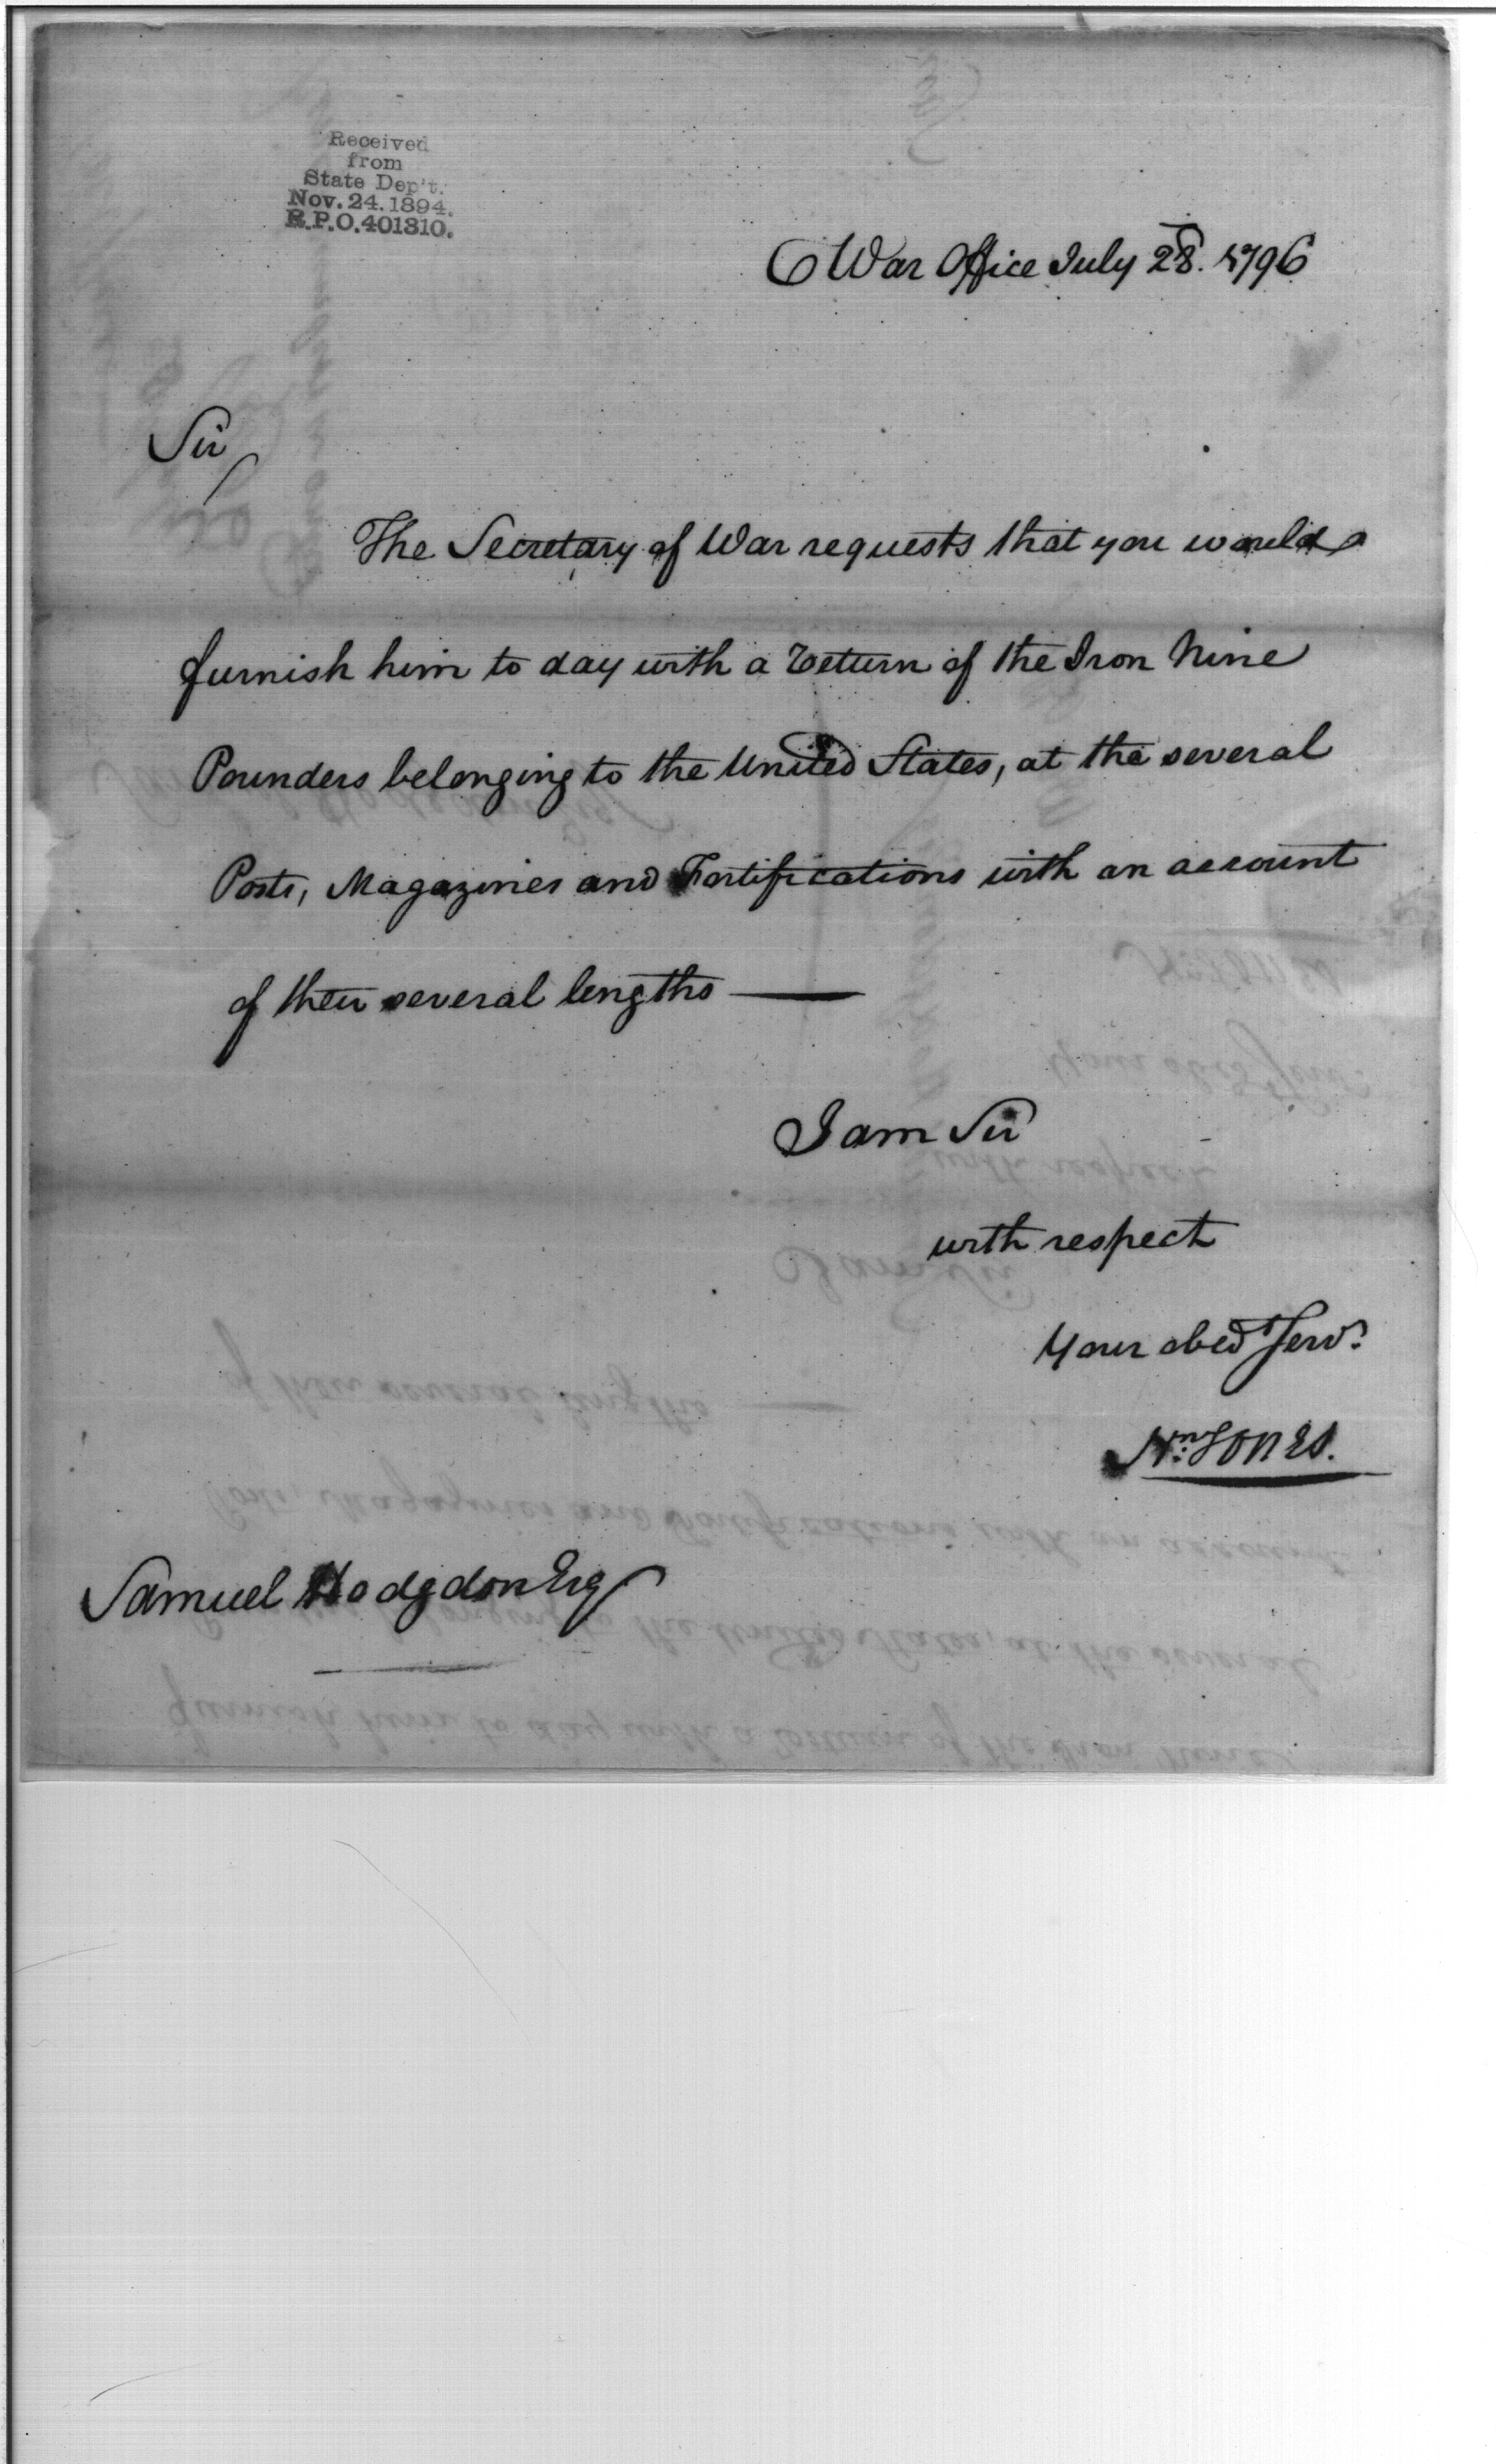 Received
from
State Dep't.
Nov. 24. 1894.
R.P.O. 401310.
War Office July 28. 1796
Sir
The Secretary of War requests that you would
furnish him to day with a Return of the Iron Nine
Pounders belonging to the United States, at the several
Posts, Magazines and Fortifications with an account
of their several lengths —
I am Sir
with respect
Your obed Serv.
Wm. Jones.
Samuel Hodgdon Esq